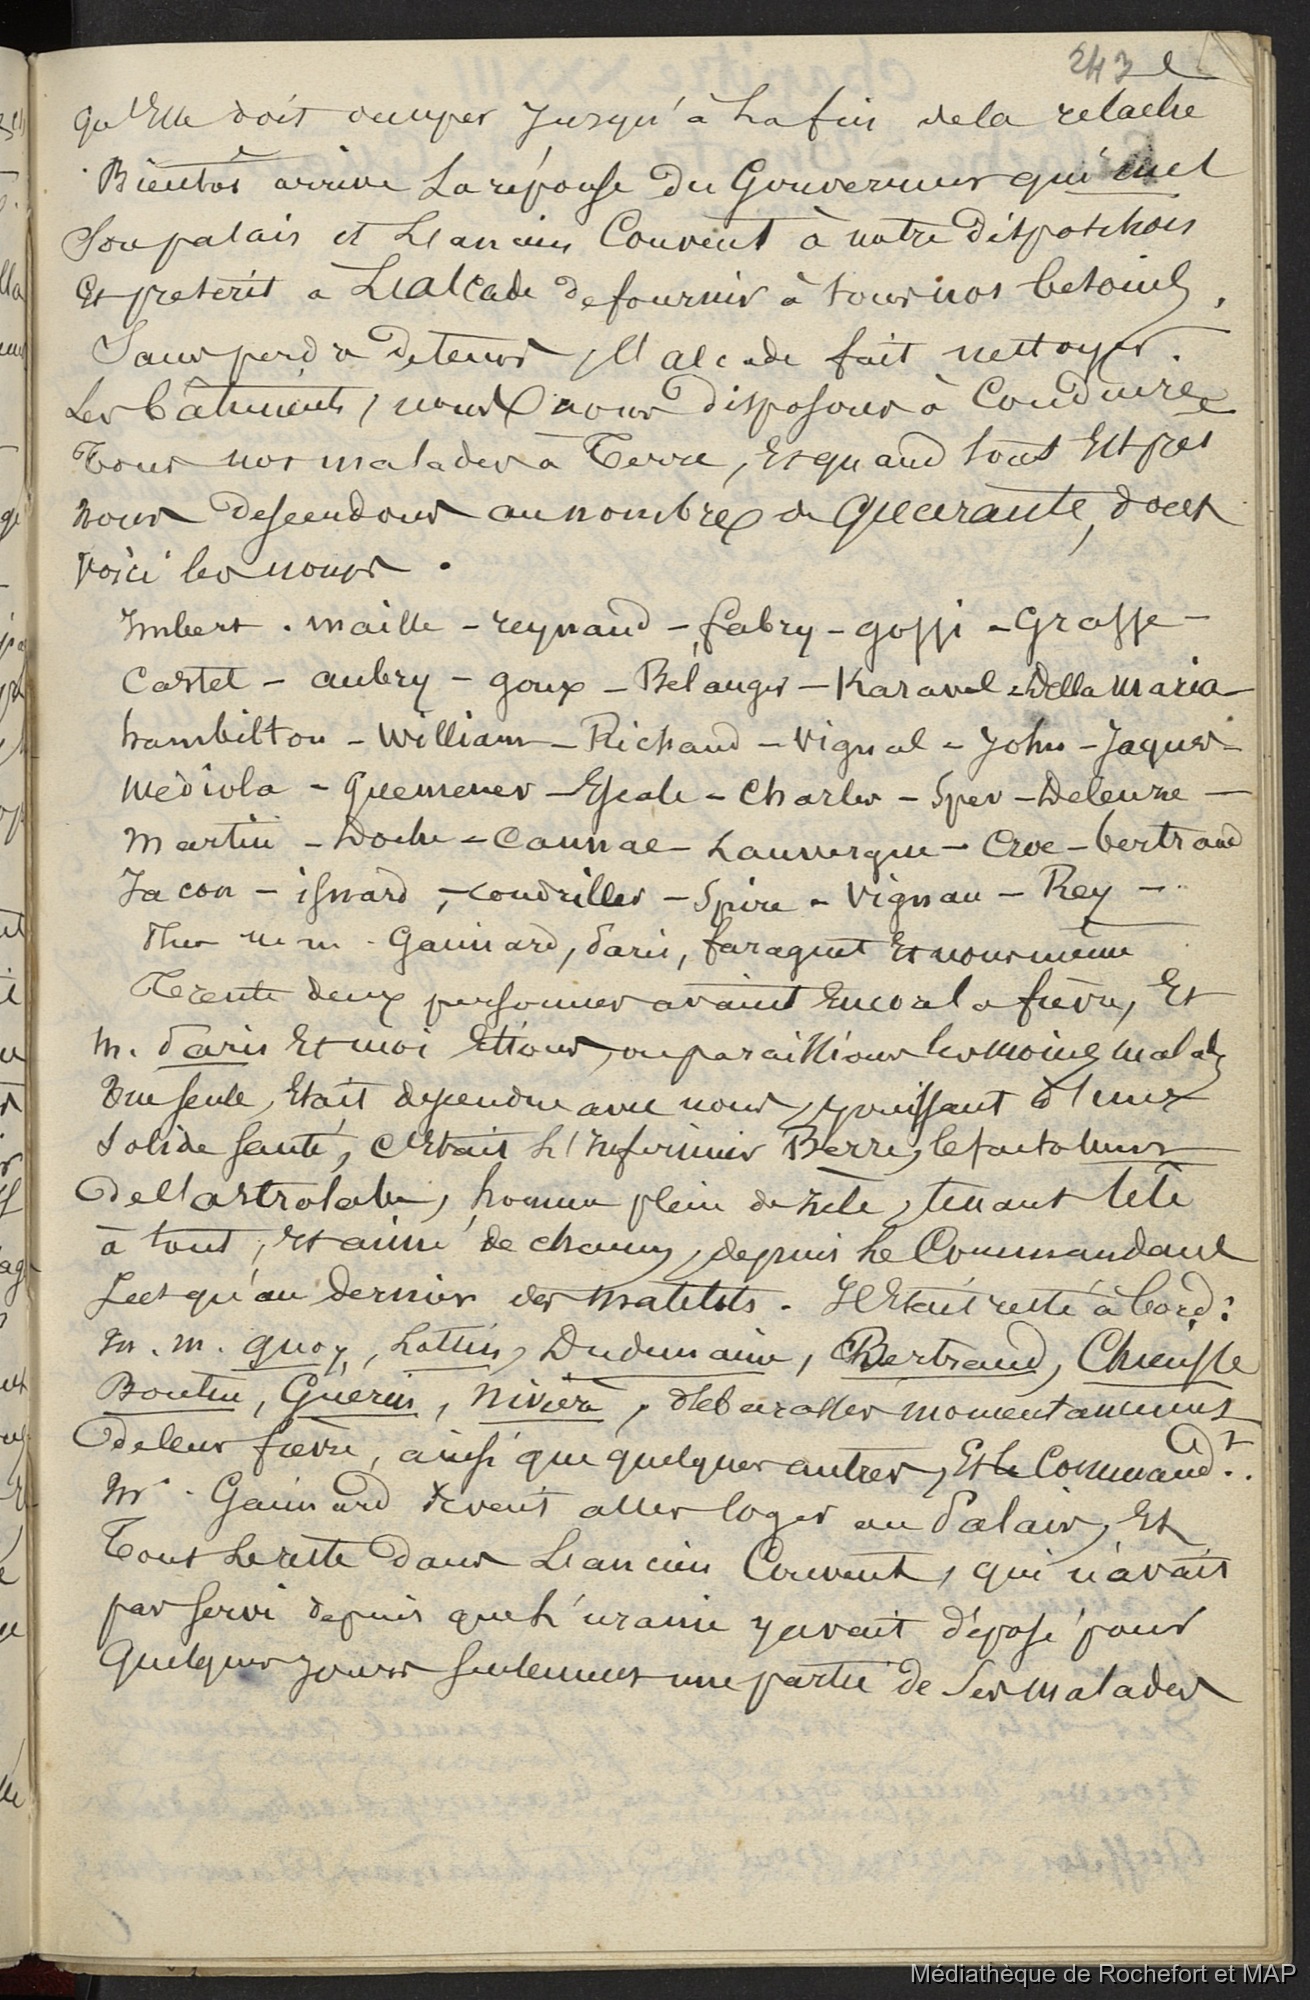 243
qu'Elle doit occuper Jusqu'à La fin de la relache
Bientôt arrive La réponse du Gouverneur qui met
Son palais et L'ancien Couvent à notre disposition
Et prescrit a L'alcade de fournir à tous nos besoins,
Sans perdre de tems, l'alcade fait nettoyer.
Les bâtiments, nous nous disposons à Conduire
Tous nos malades à Terre, Et quand tout Est prêt
nous descendons au nombre de quarante, dont
voici les noms.
Imbert - maille - reynaud - fabry - goffi - Grasse -
Castel - aubry - goux - Bélanger - Karavel - Della maria -
hambilton - William - Richaud - Vignal - John - Jaques -
Médiola - quemener - Escale - Charles - Sper - Deleuze -
Martin - Doche - Cannac - Lauvergne - Croc - bertrand
Jacon - isnard - coudriller - Spire - Vignau - Rey -
m.m. Gaimard, Paris, faraguet Et nous même
Trente deux personnes avaient Encor la fièvre, Et
m. Paris Et moi Etions, ou paraissions les moins malades
Une seule, Etait descendue avec nous, jouissant d'une
Solide santé, C'Etait L'Infirmier Berre, le factotum
de l'astrolabe, homme plein de zèle, tenant tête
à tout, Et aimé de chacun, depuis Le Commandant
Jusqu'au dernier des matelots. Il Etait resté à bord:
m.m. quoy, Lottin, Dudemaine, Bertrand, Chieusse
Boutin, Guérin, Nivière, débarassés momentanément
de leur fièvre, ainsi que quelques autres, Et Le Command.t
Mr. Gaimard devait aller loger au Palais, Et
Tout Le reste dans L'ancien Couvent, qui n'avait
pas servi depuis que L'uranie y avait déposé pour
quelques jours seulement une partie de Ses malades
Médiathèque de Rochefort et MAP